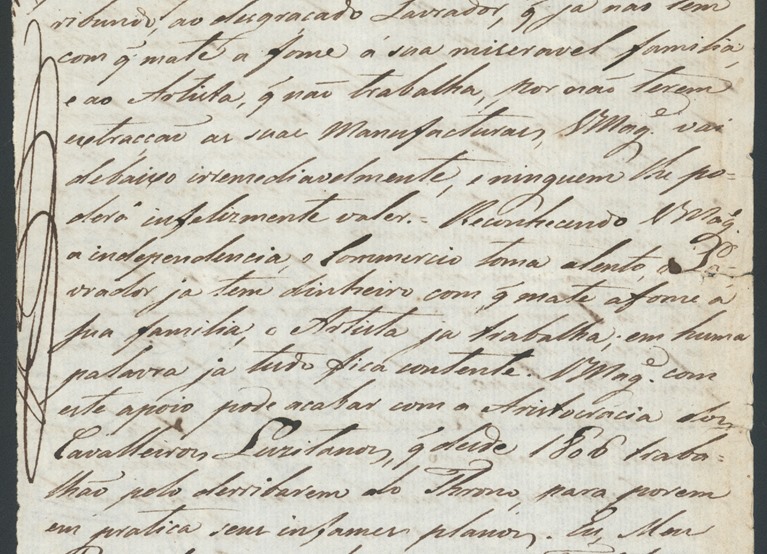 ribundo, ao desgraçado Lavrador, q̃ ja nao tem
com q̃ mate a fome á sua miseravel familia,
e ao Artista, q̃ não trabalha, por não terem
extracção as suas Manufacturas, VMag.e vai
debaixo irremediavelmente, e ninguem lhe po=
derá infelizmente valer. = Reconhecendo VMag.e
a independencia, o Commercio toma alento, o
vrador ja tem dinheiro com q̃ mate a fome á
sua familia, o Artista ja trabalha; em huma
palavra ja tudo fica contente. VMag.e com
este apoio pode acabar com a Aristocracia dos
Cavalleiros Luzitanos, q̃ desde 1806 traba=
lhão pelo derribarem do Throno, para porem
em pratica seus infames planos. Eu, Meu